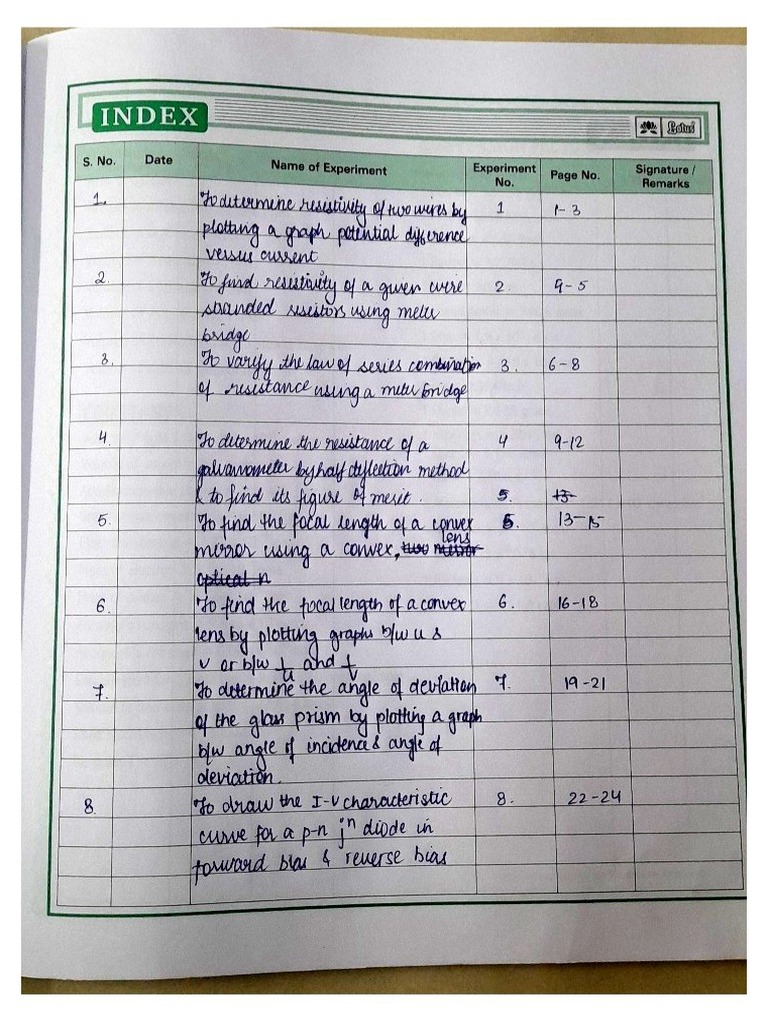 INDEX
Lotus
S. No. Date Name of Experiment Experiment No. Page No. Signature / Remarks
1. To determine resistivity of two wires by 1 1-3
plotting a graph potential difference
versus current
2. To find resistivity of a given wire 2. 9-5
stranded resistors using meter
bridge
3. To varify the law of series combination 3. 6-8
of resistance using a meter bridge
4. To determine the resistance of a 4 9-12
galvanometer by half deflection method
& to find its figure of merit. 5. 13
5. To find the focal length of a convex 5. 13-15
mirror using a convex, two mirror lens
optical n
6. To find the focal length of a convex 6. 16-18
lens by plotting graphs b/w u &
v or b/w 1/u and 1/v
7. To determine the angle of deviation 7. 19-21
of the glass prism by plotting a graph
b/w angle of incidence & angle of
deviation.
8. To draw the I-V characteristic 8. 22-24
curve for a p-n jn diode in
forward bias & reverse bias